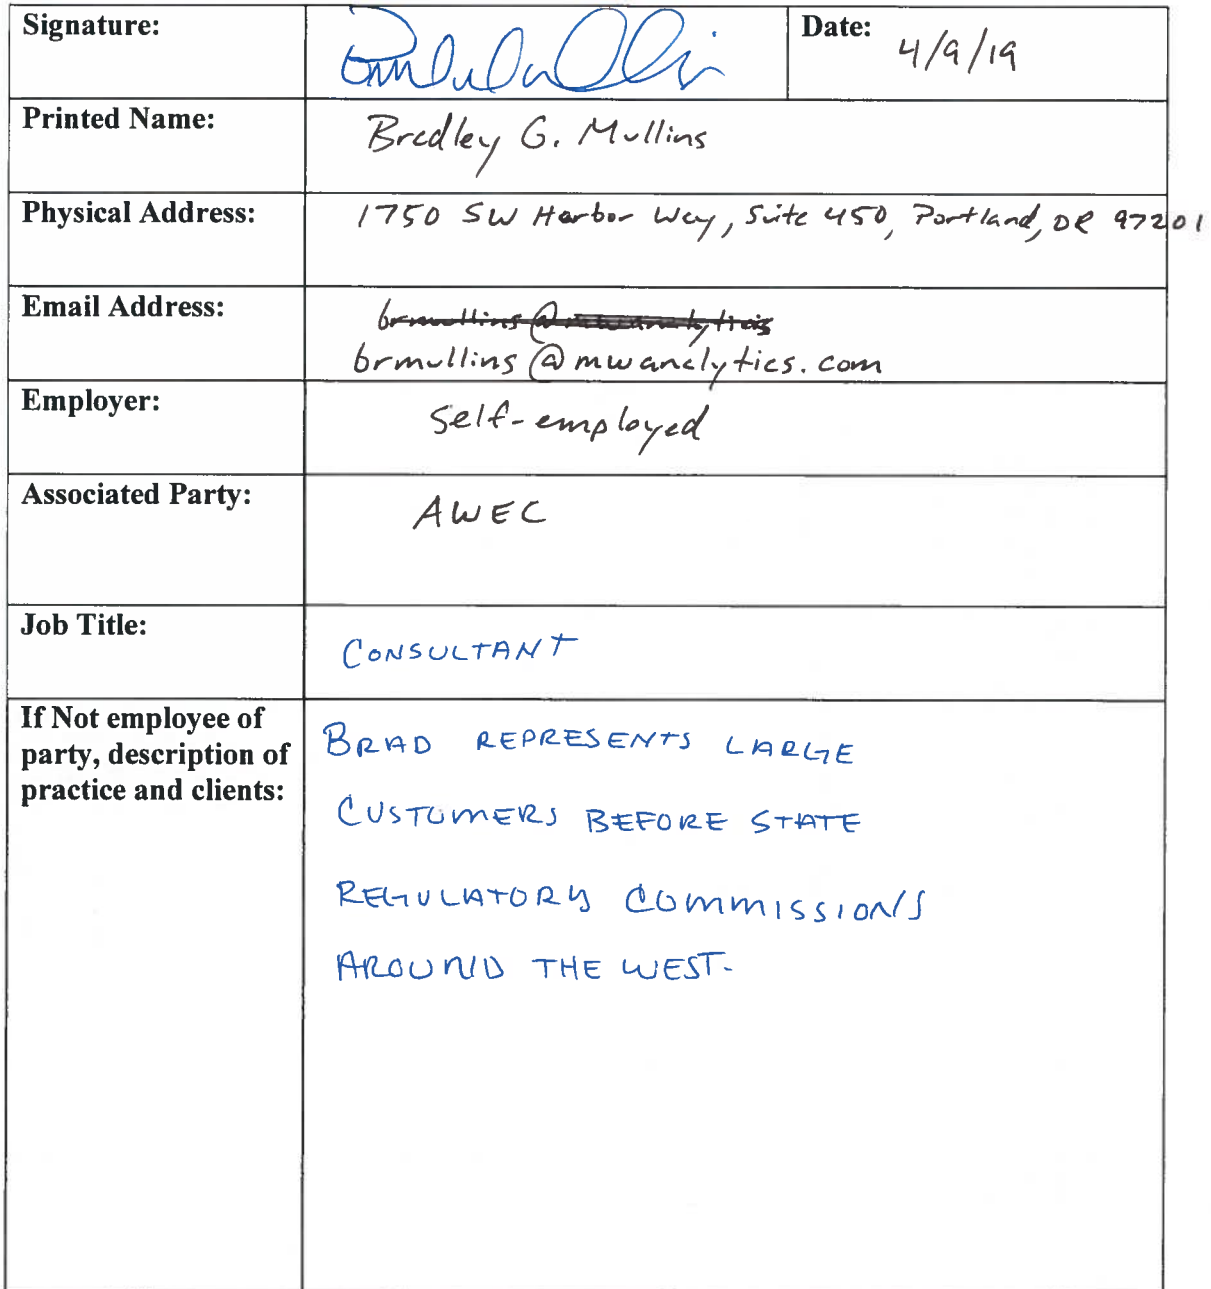 Signature:
Date: 4/9/19
Printed Name: Bradley G. Mullins
Physical Address: 1750 SW Harbor Way, Suite 450, Portland, OR 97201
Email Address: brmullins@mwanalytics
brmullins@mwanalytics.com
Employer: Self-employed
Associated Party: AWEC
Job Title: CONSULTANT
If Not employee of
party, description of
practice and clients:
BRAD REPRESENTS LARGE
CUSTOMERS BEFORE STATE
REGULATORY COMMISSIONS
AROUND THE WEST.